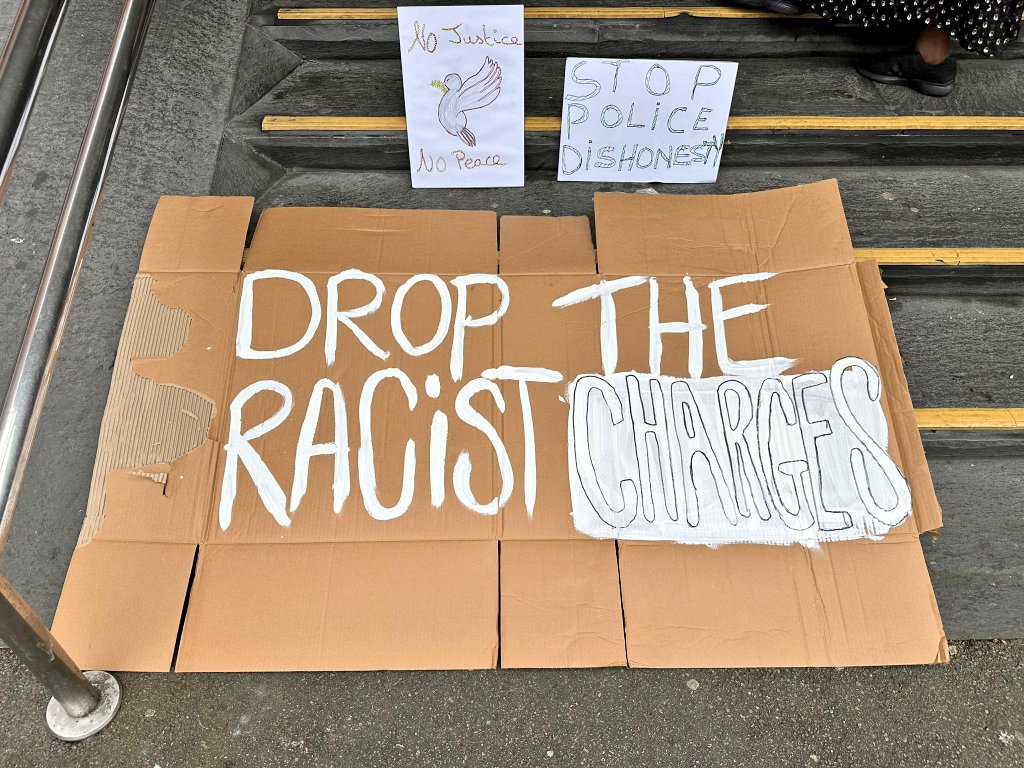 No Justice
No Peace
STOP
POLICE
DISHONESTY
DROP THE
RACiST CHARGES